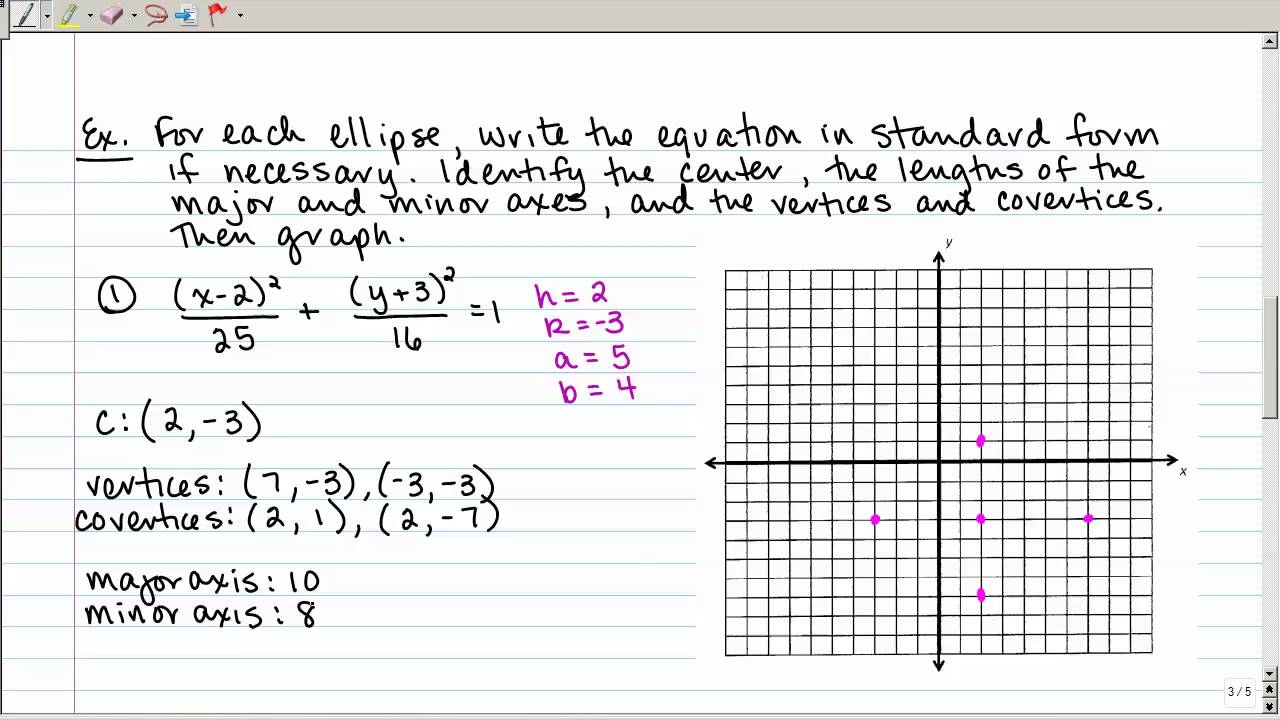 Ex. For each ellipse, write the equation in standard form
if necessary. Identify the center, the lengths of the
major and minor axes, and the vertices and covertices.
Then graph.
① (x-2)²/25 + (y+3)²/16 = 1
h = 2
k = -3
a = 5
b = 4
C: (2, -3)
vertices: (7, -3), (-3, -3)
covertices: (2, 1), (2, -7)
major axis: 10
minor axis: 8
y
x
3/5